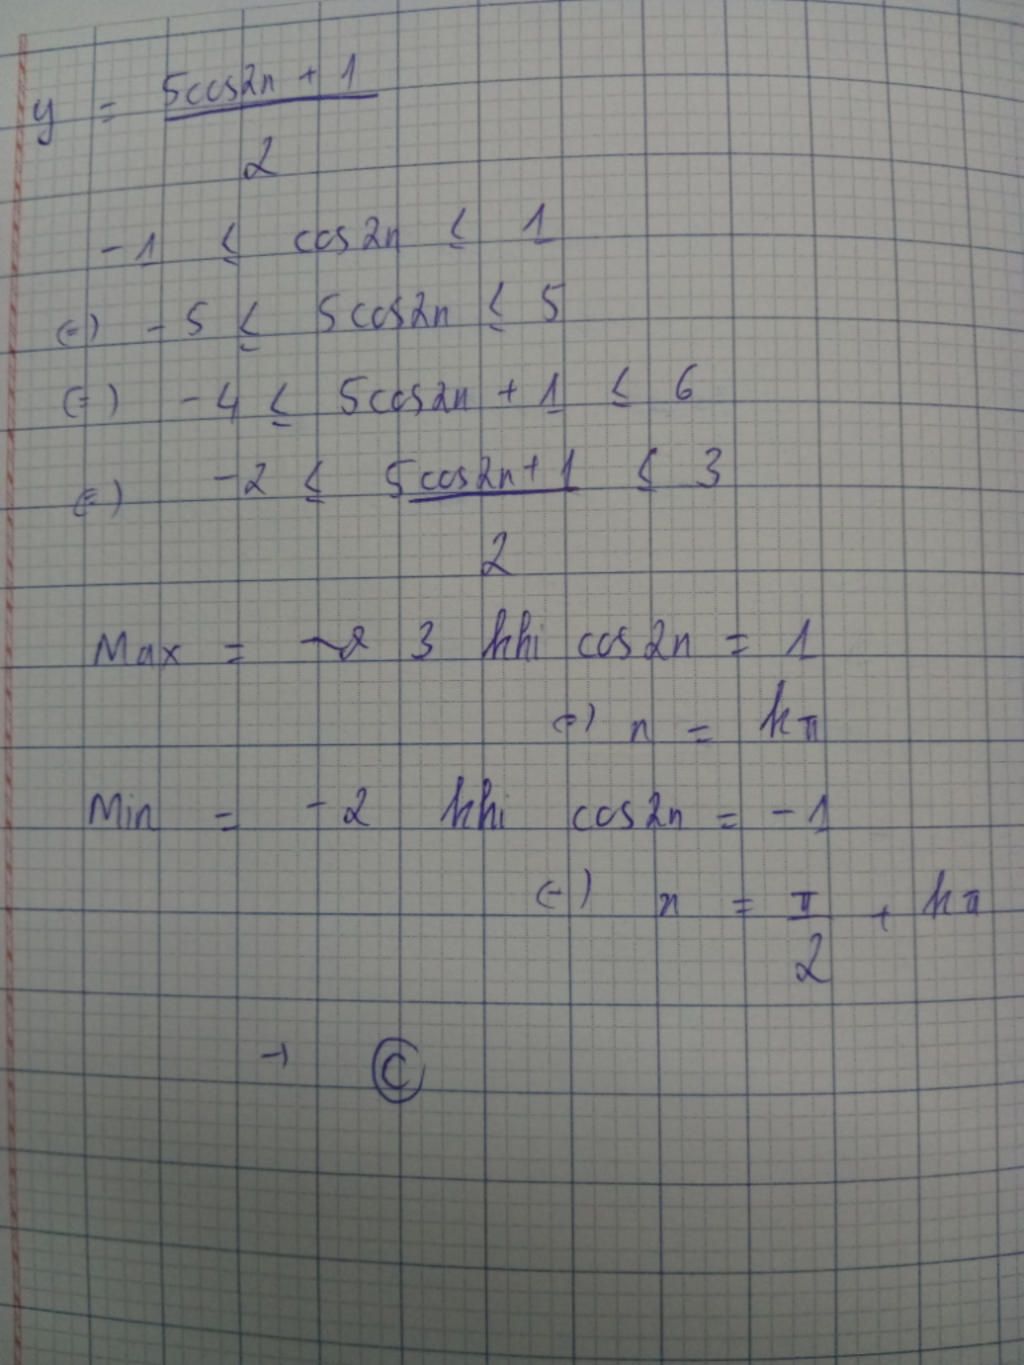 y = 5cos2x + 1
2
-1 ≤ cos2x ≤ 1
(=) -5 ≤ 5cos2x ≤ 5
(=) -4 ≤ 5cos2x + 1 ≤ 6
(=) -2 ≤ 5cos2x + 1 ≤ 3
2
Max = 3 khi cos2x = 1
(=) x = kπ
Min = -2 khi cos2x = -1
(=) x = π + kπ
2
→ C